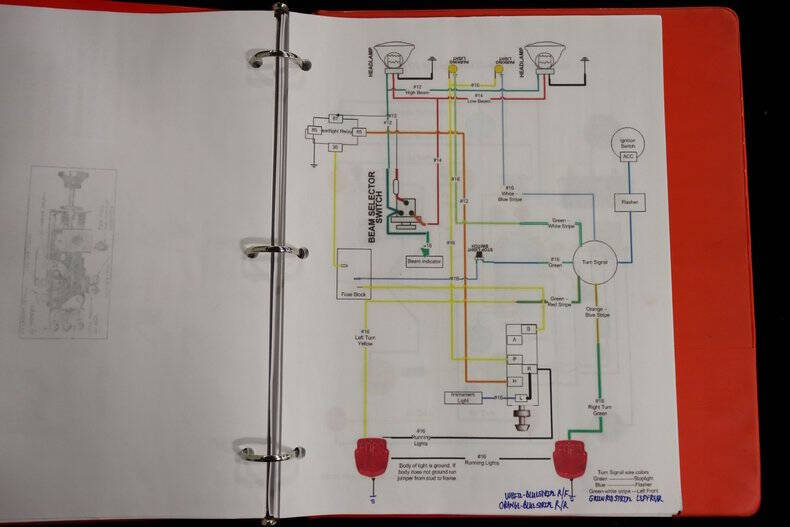 HEADLAMP
PARKING LIGHT
PARKING LIGHT
HEADLAMP
#16
#12
High Beam
#14
Low Beam
87
#12
#12
85
Headlight Relay
85
30
Ignition Switch
ACC
#14
#16
#12
#16
White -
Blue Stripe
Flasher
BEAM SELECTOR
SWITCH
Green -
White Stripe
#16
#16
Beam indicator
STOP LIGHT SWITCH
#16
Green
Turn Signal
#16
Fuse Block
Green -
Red Stripe
Orange -
Blue Stripe
#16
Left Turn
Yellow
B
A
P
R
H
L
Instrument
Light
#16
#16
Right Turn
Green
#16
Running
Lights
#16
Running Lights
Body of light is ground. If
body does not ground run
jumper from stud to frame
Turn Signal wire colors
Green ———— Stoplight
Blue ———— Flasher
Green-white stripe — Left Front
WHITE-BLUE STRIPE R/F
GREEN RED STRIPE LEFT REAR
ORANGE-BLUE STRIPE R/R